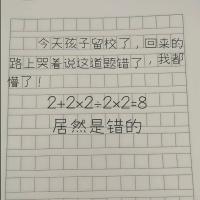 今天孩子留校了，回来的
路上哭着说这道题错了，我都
懵了！
2+2×2÷2×2=8
居然是错的